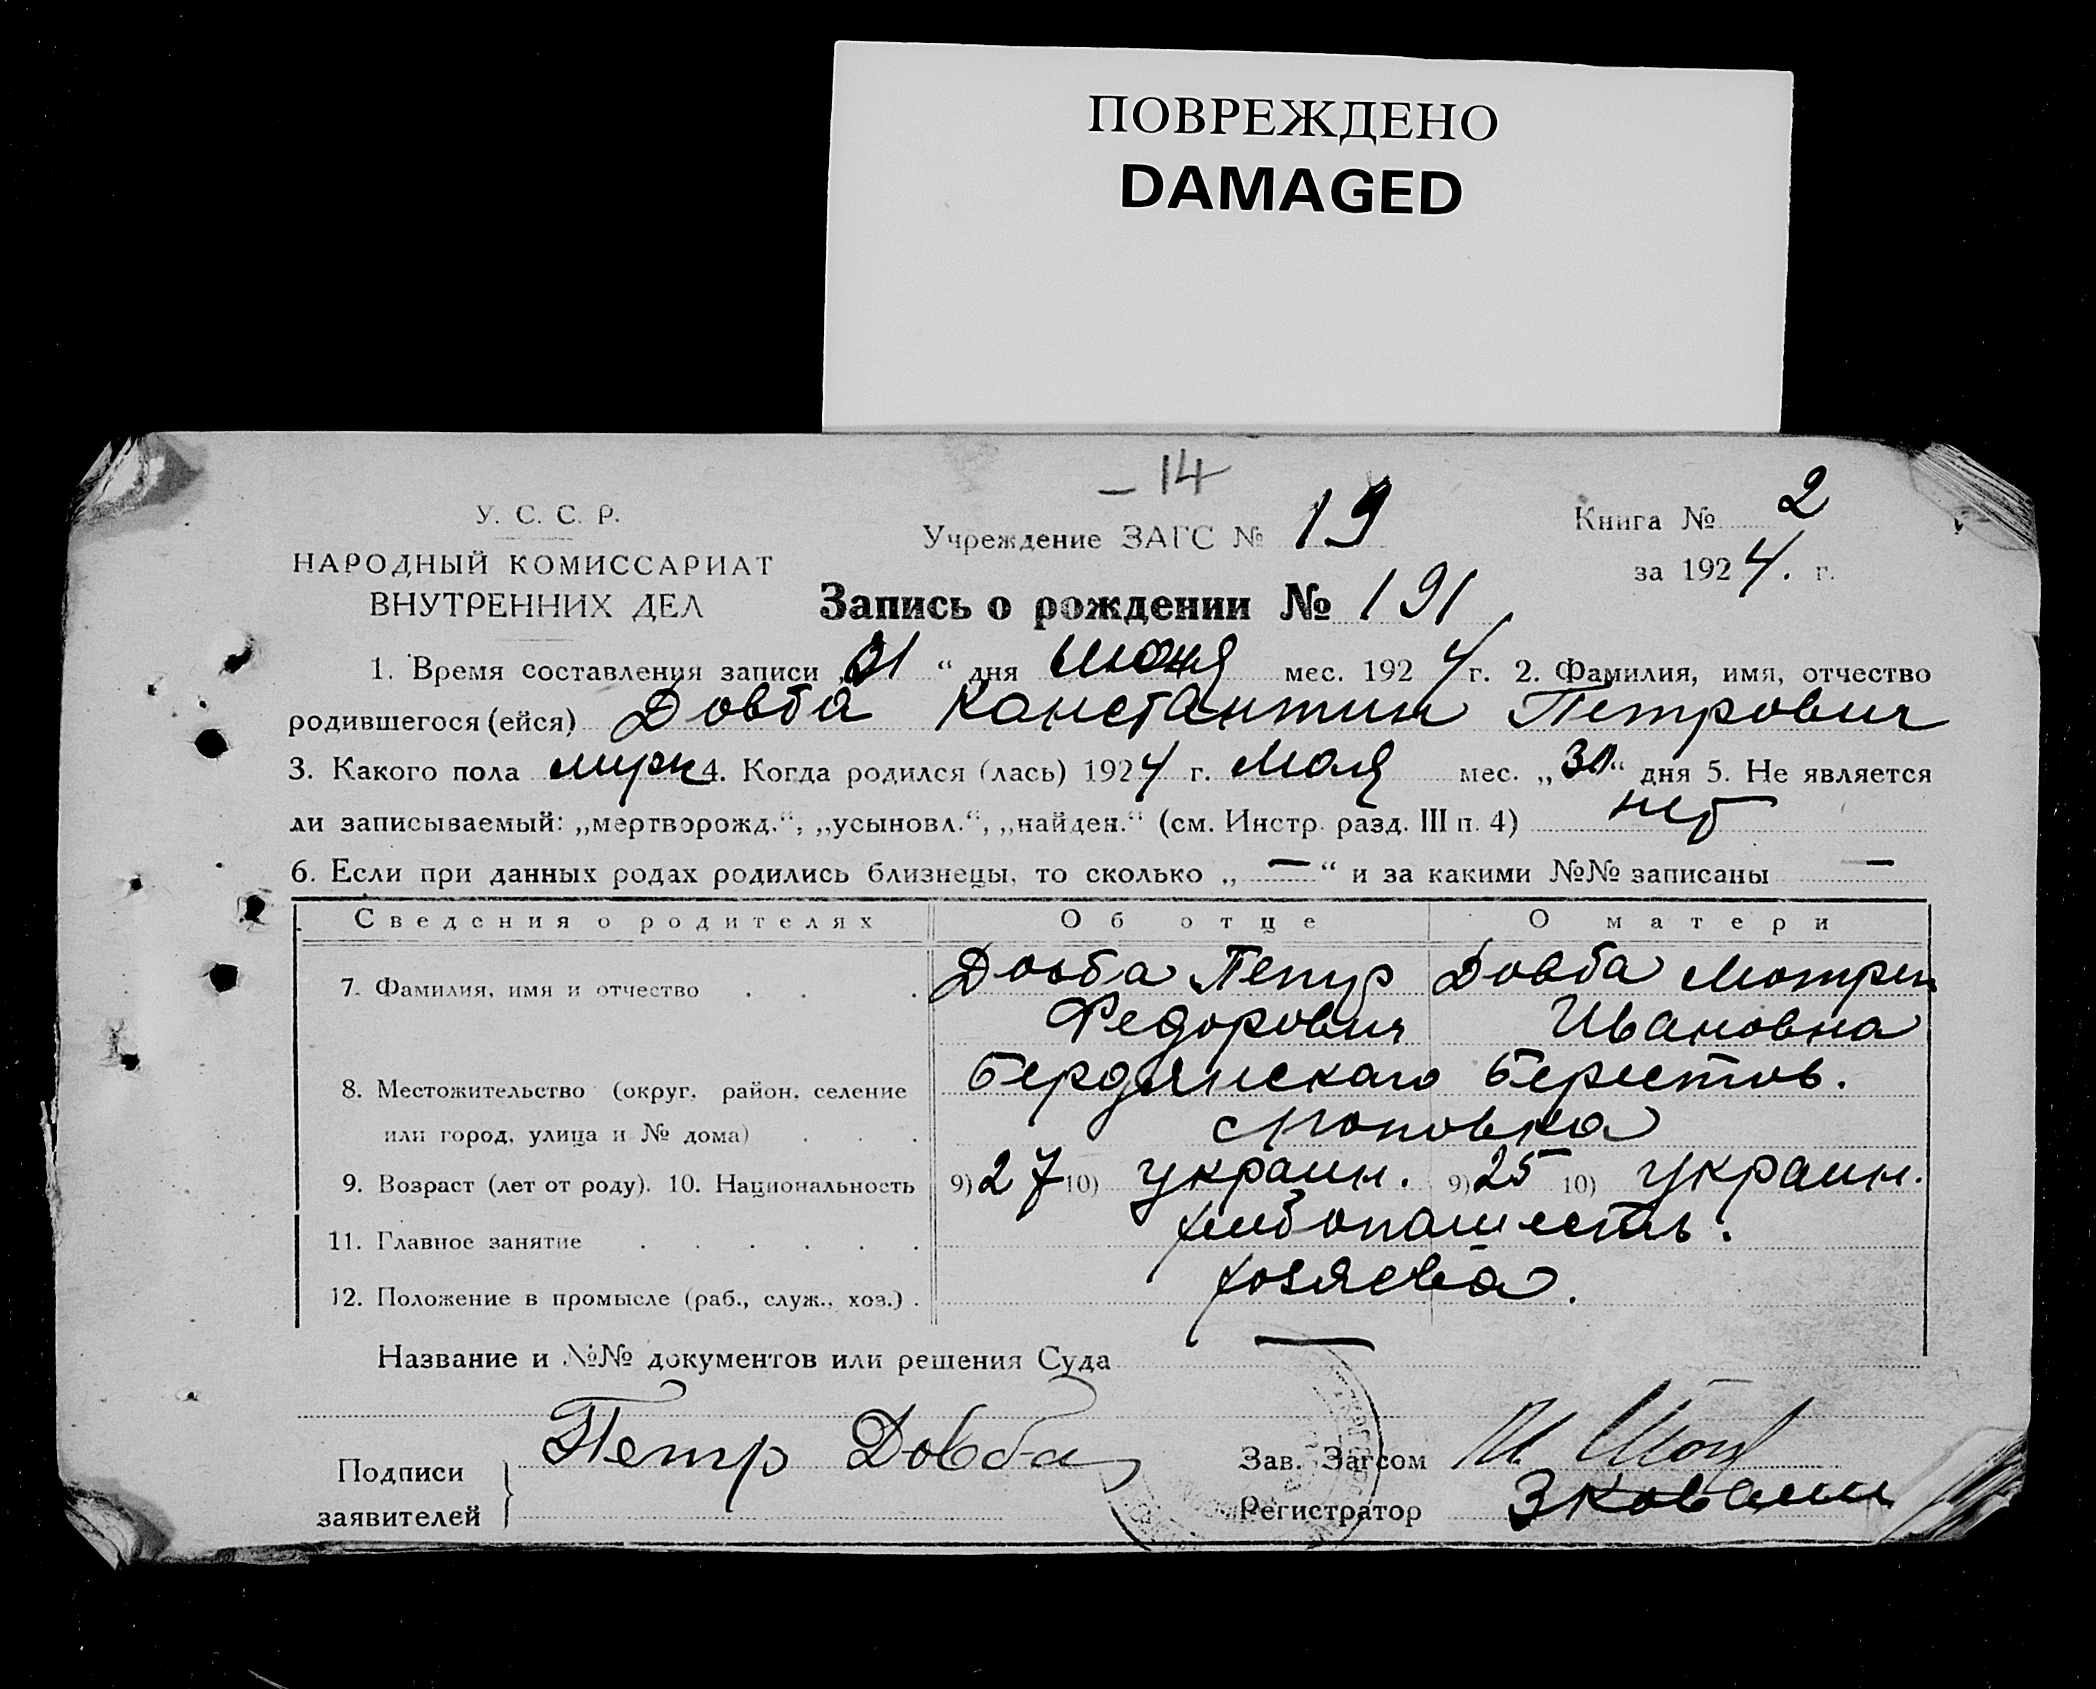 ПОВРЕЖДЕНО
DAMAGED
– 14
У. С. С. Р.
НАРОДНЫЙ КОМИССАРИАТ
ВНУТРЕННИХ ДЕЛ
Учреждение ЗАГС № 19
Книга № 2
за 1924. г.
Запись о рождении № 191
1. Время составления записи „ “ дня июня мес. 1924 г. 2. Фамилия, имя, отчество
родившегося (ейся) Довба Константин Петрович
3. Какого пола мужск 4. Когда родился (лась) 1924 г. Мая мес. „30“ дня 5. Не является
ли записываемый: „мертворожд.“, „усыновл.“, „найден.“ (см. Инстр. разд. III п. 4) нет
6. Если при данных родах родились близнецы, то сколько „—“ и за какими №№ записаны —
Сведения о родителях Об отце О матери
7. Фамилия, имя и отчество . . . Довба Петр Довба Мотрен
Федорович Ивановна
8. Местожительство (округ, район, селение Бердянскаго Берестов.
или город, улица и № дома) . . .
9. Возраст (лет от роду). 10. Национальность 9) 27 10) украин. 9) 25 10) украин.
11. Главное занятие . . . . . . хлебопашест.
12. Положение в промысле (раб., служ., хоз.) . хозяева.
Название и №№ документов или решения Суда —
Подписи заявителей } Петр Довба
Зав. Загсом
Регистратор